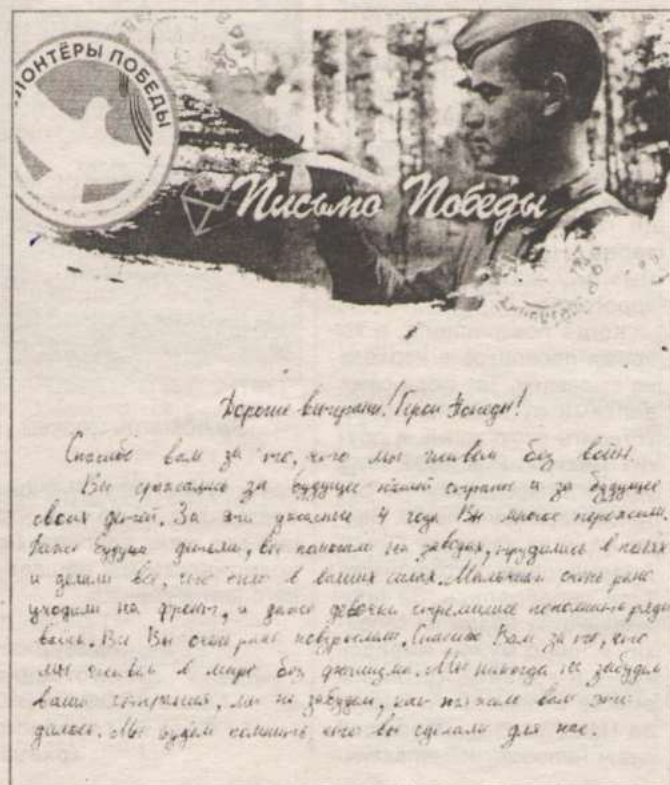 ВОЛОНТЁРЫ ПОБЕДЫ
Письмо Победы
Дорогие ветераны! Герои Победы!
Спасибо вам за то, что мы живём без войны.
Вы сражались за будущее нашей страны и за будущее
своих детей. За эти ужасные 4 года Вы многое пережили.
Даже будучи детьми, вы помогали на заводах, трудились в полях
и делали все, что было в ваших силах. Мальчики очень рано
уходили на фронт, и даже девочки стремились пополнить ряды
Все Вы очень рано повзрослели. Спасибо Вам за то, что
мы живём в мире без фашизма. Мы никогда не забудем
ваши страдания, мы не забудем, как тяжело вам это
далось. Мы будем помнить, что вы сделали для нас.